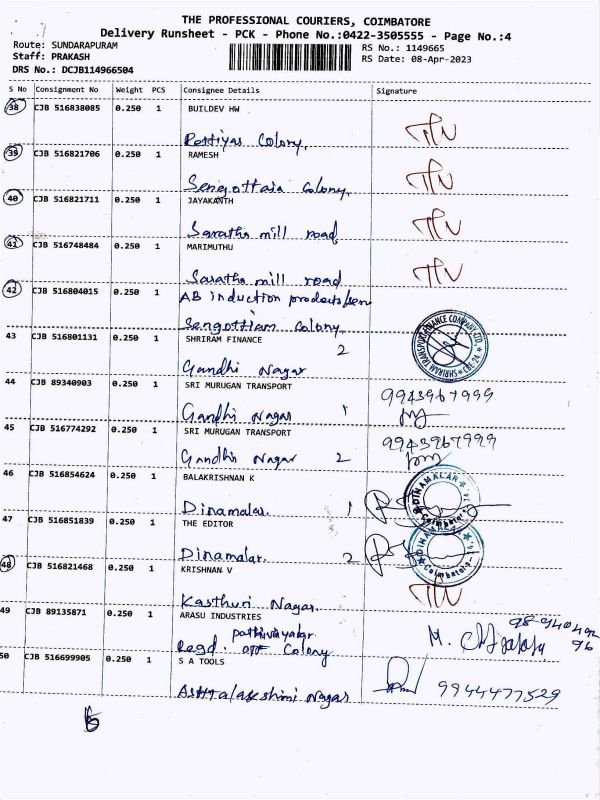 THE PROFESSIONAL COURIERS, COIMBATORE
Delivery Runsheet - PCK - Phone No.:0422-3505555 - Page No.:4
Route: SUNDARAPURAM RS No.: 1149665
Staff: PRAKASH RS Date: 08-Apr-2023
DRS No.: DCJB114966504
S No Consignment No Weight PCS Consignee Details Signature
38 CJB 516838085 0.250 1 BUILDEV HW
Colony.
39 CJB 516821706 0.250 1 RAMESH
Sengottaia Colony.
40 CJB 516821711 0.250 1 JAYAKANTH
Saratha mill road
41 CJB 516748484 0.250 1 MARIMUTHU
Saratha mill road
42 CJB 516804015 0.250 1 AB induction products/
Colony.
43 CJB 516801131 0.250 1 SHRIRAM FINANCE
2
Gandhi Nagar
44 CJB 89340903 0.250 1 SRI MURUGAN TRANSPORT 9943967999
Gandhi Nagar 1
45 CJB 516774292 0.250 1 SRI MURUGAN TRANSPORT 9943967999
Gandhi Nagar 2
46 CJB 516854624 0.250 1 BALAKRISHNAN K
DINAMALAR
Coimbatore
Dinamalar. 1
47 CJB 516851839 0.250 1 THE EDITOR
DINAMALAR
Coimbatore
Dinamalar. 2
48 CJB 516821468 0.250 1 KRISHNAN V
Kasthuri Nagar.
49 CJB 89135871 0.250 1 ARASU INDUSTRIES
Regd. off Colony
50 CJB 516699905 0.250 1 S A TOOLS
9944477529
Nagar